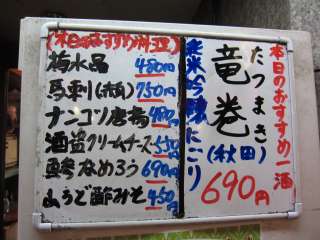 本日のおすすめ一酒
たつまき
竜巻(秋田)
純米吟醸にごり
690円
(本日のおすすめ料理)
梅水晶 480円
馬刺(赤身) 750円
ナンコツ唐揚 480円
酒盗クリームチーズ 550円
鯵なめろう 690円
山うど酢みそ 450円